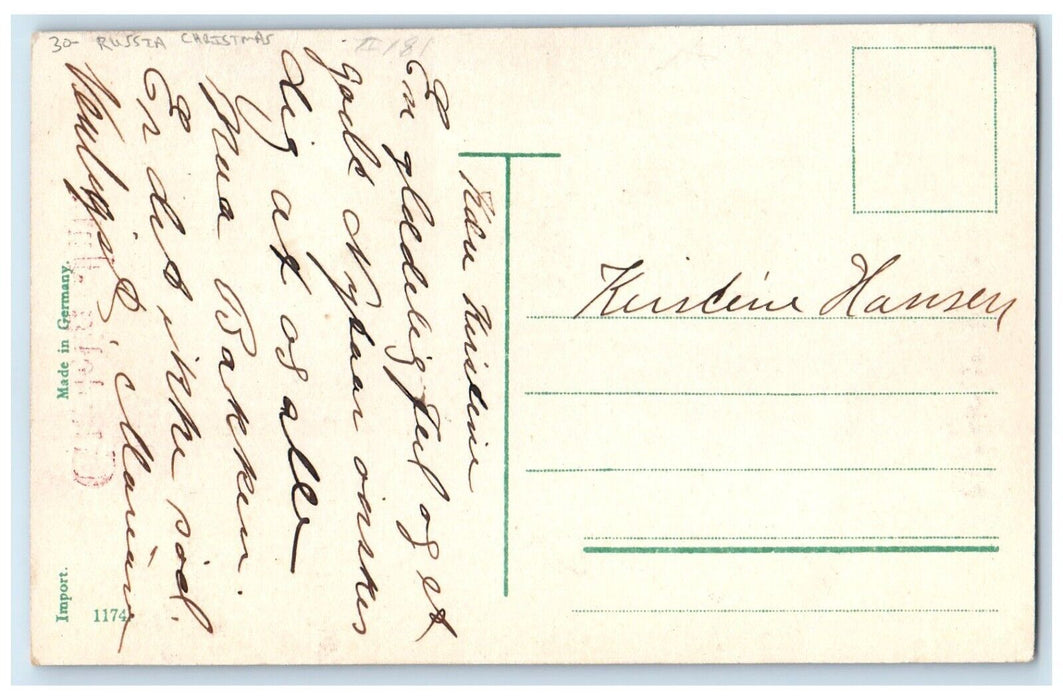 30- RUSSIA CHRISTMAS
Kære Kirstine
En glædelig Jul og et
godt Nytaar ønskes
dig af os alle
paa Bakken.
Er det ikke sød.
Venligst, Marie
Kirstine Hansen
Made in Germany.
Import.
1174